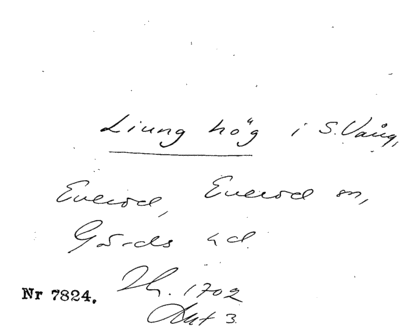 Liung hög i S. Vång,
Everöd, Everöd sn,
Gärds hd.
Nr 7824. Lh. 1702
Akt 3.